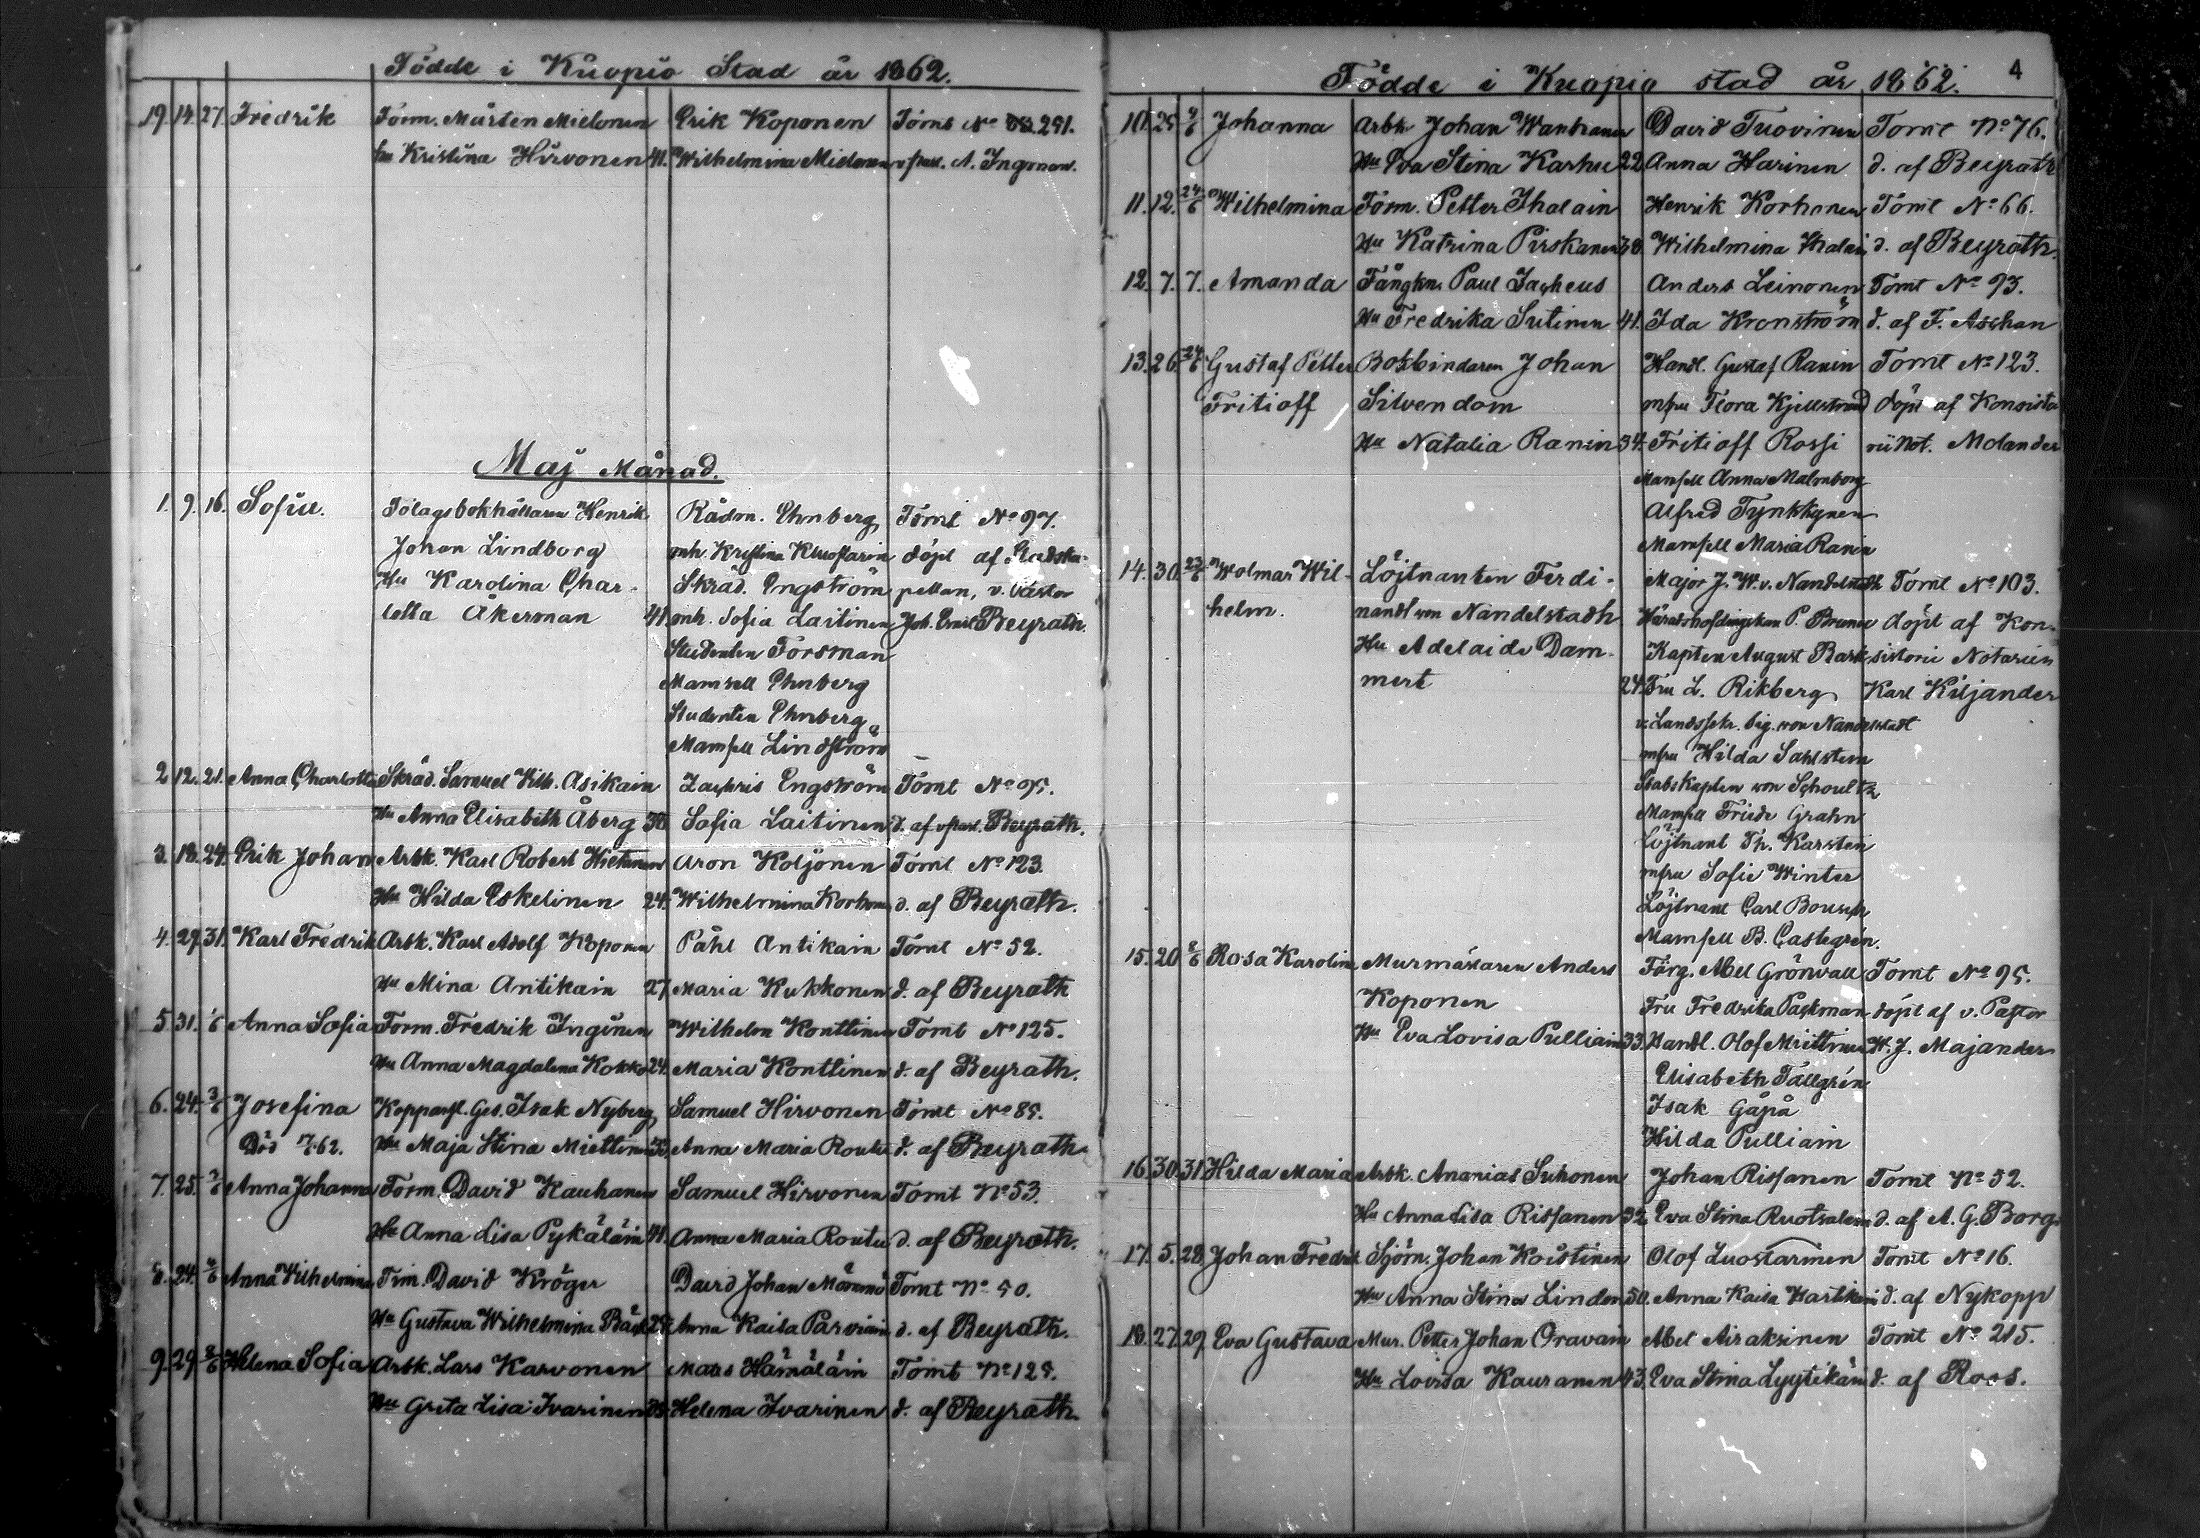 Födde i Kuopio Stad år 1862.
19. 14. 27. Fredrik Form. Mårten Mielonen Erik Koponen Tomt No 291.
hu Kristina Hirvonen 41. Wilhelmina Mielonen v. past. A. Ingman.
Maj Månad.
1. 9. 16. Sofia. Bolagsbokhållaren Henrik Rådm. Ehnberg Tomt No 97.
Johan Lindborg mh. Kristina döpt af Stadska-
Hu Karolina Char- Skräd. Engström pellan, v. Pastor
lotta Åkerman 41. mh. Sofia Laitinen Joh. Emil Beyrath.
Studenten Forsman
Mamsell Ehnberg
Studenten Ehnberg
Mamsell Lindström
2. 12. 21. Anna Charlotta Skräd. Samuel Wilh. Asikain Zachris Engström Tomt No 95.
Hu Anna Elisabeth Åberg 30. Sofia Laitinen d. af v. past. Beyrath.
3. 18. 24. Erik Johan Arbk. Karl Robert Hietanen Aron Koljonen Tomt No 123.
Hu Hilda Eskelinen 24. Wilhelmina Korhonen d. af Beyrath.
4. 29. 31. Karl Fredrik Arbk. Karl Adolf Koponen Påhl Antikain Tomt No 52.
Hu Mina Antikain 27. Maria Kukkonen d. af Beyrath
5. 31. 1/6 Anna Sofia Form. Fredrik Inginen Wilhelm Konttinen Tomt No 125.
Hu Anna Magdalena Kokko 24. Maria Konttinen d. af Beyrath.
6. 24. 3/6 Josefina Kopparsl. Ges. Isak Nyberg Samuel Hirvonen Tomt No 85.
Död 62. Hu Maja Stina Miettinen Anna Maria Routu d. af Beyrath
7. 25. Anna Johanna Form. David Kauhanen Samuel Hirvonen Tomt No 53.
Hu Anna Lisa Pykäläin 41. Anna Maria Routu d. af Beyrath.
8. 24. Anna Wilhelmina Tim. David Kröger David Johan Tomt No 50.
Hu Gustava Wilhelmina Anna Kaisa Parviain d. af Beyrath.
9. 29. 8/6 Helena Sofia Arbk. Lars Karvonen Mats Hämäläin Tomt No 125.
Hu Greta Lisa Ivarinen Helena Ivarinen d. af Beyrath.
Födde i Kuopio stad år 1862. 4
10. 25. 9/6 Johanna Arbk Johan Wanhanen David Tuovinen Tomt No 76.
Hu Eva Stina Karhu 22. Anna Harinen d. af Beyrath
11. 12. 24/6 Wilhelmina Form. Petter Ihalain Henrik Korhonen Tomt No 66.
Hu Katrina Pirskanen 38. Wilhelmina Ihalain d. af Beyrath.
12. 7. 7. Amanda Fångkn. Paul Zacheus Anders Leinonen Tomt No 93.
Hu Fredrika Sutinen 41. Ida Kronström d. af F. Aschan
13. 26. 24/6 Gustaf Petter Bokbindaren Johan Handl. Gustaf Ranin Tomt No 123.
Fritioff Silvendom mfru Flora Kjellstrand döpt af Konsisto
Hu Natalia Ranin 34. Fritioff Rossi rii Not. Molander
Mamsell Anna Malmborg
Alfred Tynkkynen
Mamsell Maria Ranin
14. 30. 23/6 Wolmar Wil- Löjtnanten Ferdi- Major J. W. v. Nandelstadh Tomt No 103.
helm. nand von Nandelstadh Häradshöfdingskan P. döpt af Kon-
Hu Adelaide Dam- Kapten August sistorii Notarien
mert 24. Fru L. Rikberg Karl Kiljander
v. Landssekr. Sig. von Nandelstadt
mfru Hilda Sahlstein
Stabskapten von Schoultz
Mamsell Friede Grahn
Löjtnant Th. Karsten
mfru Sofie Winter
Löjtnant Carl
Mamsell B. Castegrén.
15. 20. 8/6 Rosa Karolina Murmästaren Anders Färg. Abel Grönvall Tomt No 95.
Koponen Fru Fredrika Packman döpt af v. Pastor
Hu Eva Lovisa Pulliain 33. Handl. Olof Miettinen W. J. Majander
Elisabeth Tallgrén
Isak Gåpå
Hilda Pulliain
16. 30. 31. Hilda Maria Arbk. Ananias Suhonen Johan Rissanen Tomt No 52.
Hu Anna Lisa Rissanen 32. Eva Stina Ruotsalain d. af A. G. Borg
17. 5. 28. Johan Fredrik Sjöm. Johan Koistinen Olof Luostarinen Tomt No 16.
Hu Anna Stina Linden 50. Anna Kaisa Hartikain d. af Nykopp
18. 27. 29. Eva Gustava Mur. Petter Johan Oravain Abel Airaksinen Tomt No 215.
Hu Lovisa Kauranen 43. Eva Stina Lyytikäin d. af Roos.